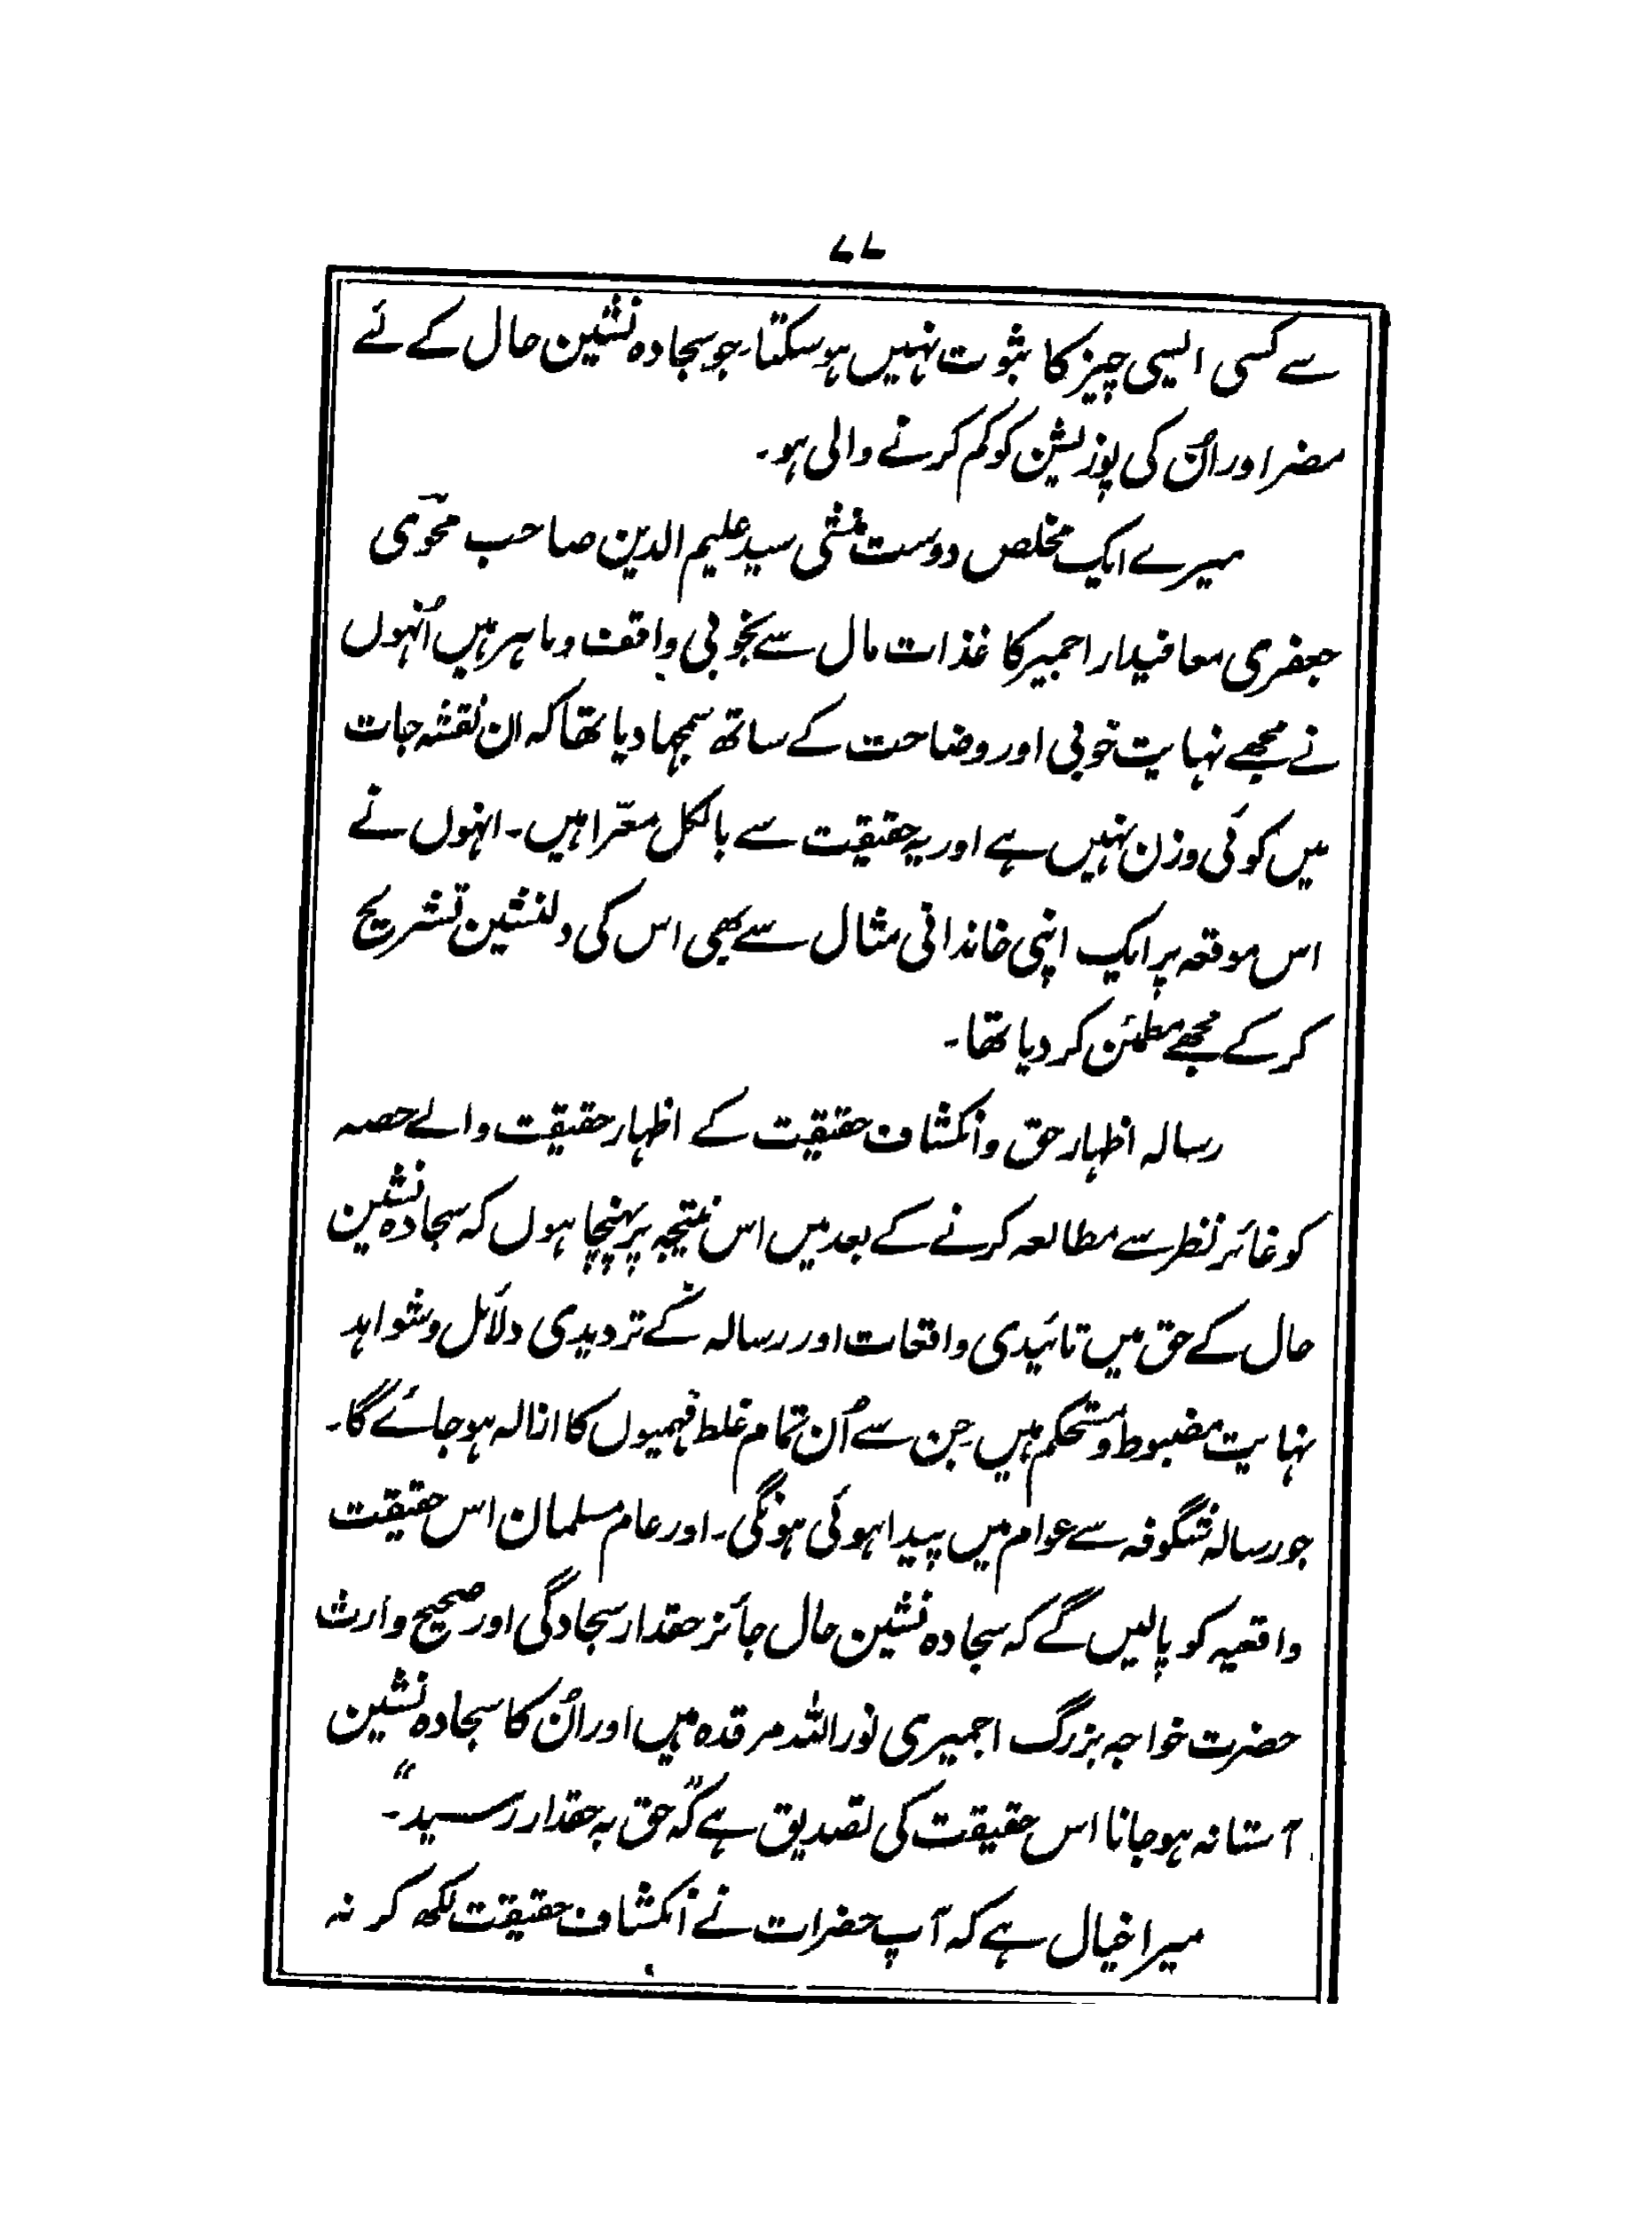 ۷۷
سے کسی ایسی چیز کا ثبوت نہیں ہو سکتا۔ جو سجادہ نشین حال کے لئے
مضر اور اُن کی پوزیشن کو کم کرنے والی ہو۔
میرے ایک مخلص دوست منشی سید علیم الدین صاحب محوؔی
جعفری معافیدار اجمیر کاغذات مال سے بخوبی واقف و ماہر ہیں اُنہوں
نے مجھے نہایت خوبی اور وضاحت کے ساتھ سمجہا دیا تھا کہ ان نقشہ جات
میں کوئی وزن نہیں ہے اور یہ حقیقت سے بالکل معّرا ہیں۔ انہوں نے
اس موقعہ پر ایک اپنی خاندانی مثال سے بھی اس کی دلنشین تشریح
کر کے مجھے مطمئن کر دیا تھا۔
رسالہ اظہار حق و انکشاف حقیقت کے اظہار حقیقت والے حصہ
کو غائر نظر سے مطالعہ کرنے کے بعد میں اس نتیجہ پر پہنچا ہوں کہ سجادہ نشین
حال کے حق میں تائیدی واقعات اور رسالہ کے تردیدی دلائل و شواہد
نہایت مضبوط و مستحکم ہیں جن سے اُن تمام غلط فہمیوں کا ازالہ ہو جائے گا۔
جو رسالہ شگوفہ سے عوام میں پیدا ہوئی ہونگی۔ اور عام مسلمان اس حقیقت
واقعیہ کو پالیں گے کہ سجادہ نشین حال جائز حقدار سجادگی اور صحیح وارث
حضرت خواجہ بزرگ اجمیری نور اللہ مرقدہ ہیں اور اُن کا سجادہ نشین
آستانہ ہو جانا اس حقیقت کی تصدیق ہے کہ "حق بہ حقدار رسید"۔
میرا خیال ہے کہ آپ حضرات نے انکشاف حقیقت لکھ کر نہ